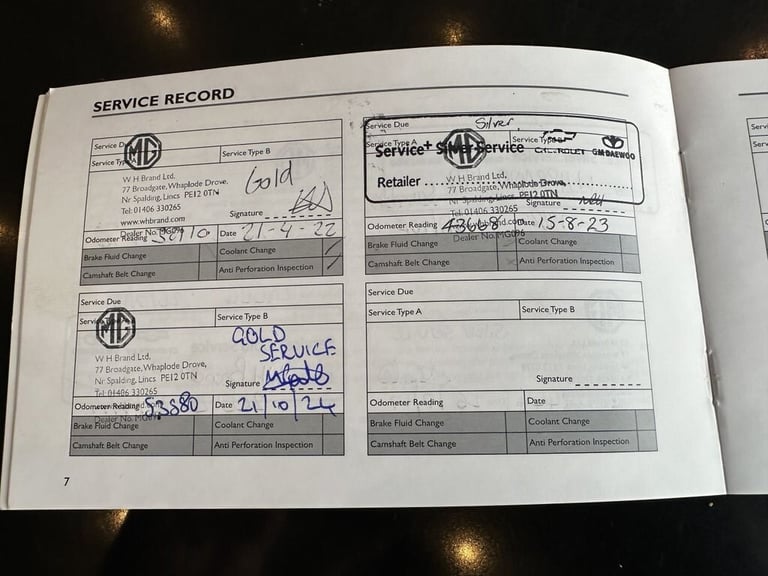 SERVICE RECORD
Service D
MG
Service Ty
Service Type B
W H Brand Ltd.
77 Broadgate, Whaplode Drove,
Nr Spalding, Lincs PE12 0TN
Tel: 01406 330265
www.whbrand.com
Dealer No. MG096
Gold
Signature
Odometer Reading
Date 21-4-22
Brake Fluid Change
Coolant Change
Camshaft Belt Change
Anti Perforation Inspection
Service Due
Silver
Service Type A
Service Type B
Service+ Silver Service
CHEVROLET GM DAEWOO
MG
Retailer
W H Brand Ltd.
77 Broadgate, Whaplode Drove,
Nr Spalding, Lincs PE12 0TN
Tel: 01406 330265
Signature
Odometer Reading 43668
Date 15-8-23
Dealer No. MG096
Brake Fluid Change
Coolant Change
Camshaft Belt Change
Anti Perforation Inspection
Service Due
Service Type A
MG
Service Type B
GOLD
SERVICE
W H Brand Ltd,
77 Broadgate, Whaplode Drove,
Nr Spalding, Lincs PE12 0TN
Tel: 01406 330265
Signature
Odometer Reading 53880
Date 21/10/24
Dealer No. MG096
Brake Fluid Change
Coolant Change
Camshaft Belt Change
Anti Perforation Inspection
Service Due
Service Type A
Service Type B
Signature
Odometer Reading
Date
Brake Fluid Change
Coolant Change
Camshaft Belt Change
Anti Perforation Inspection
7